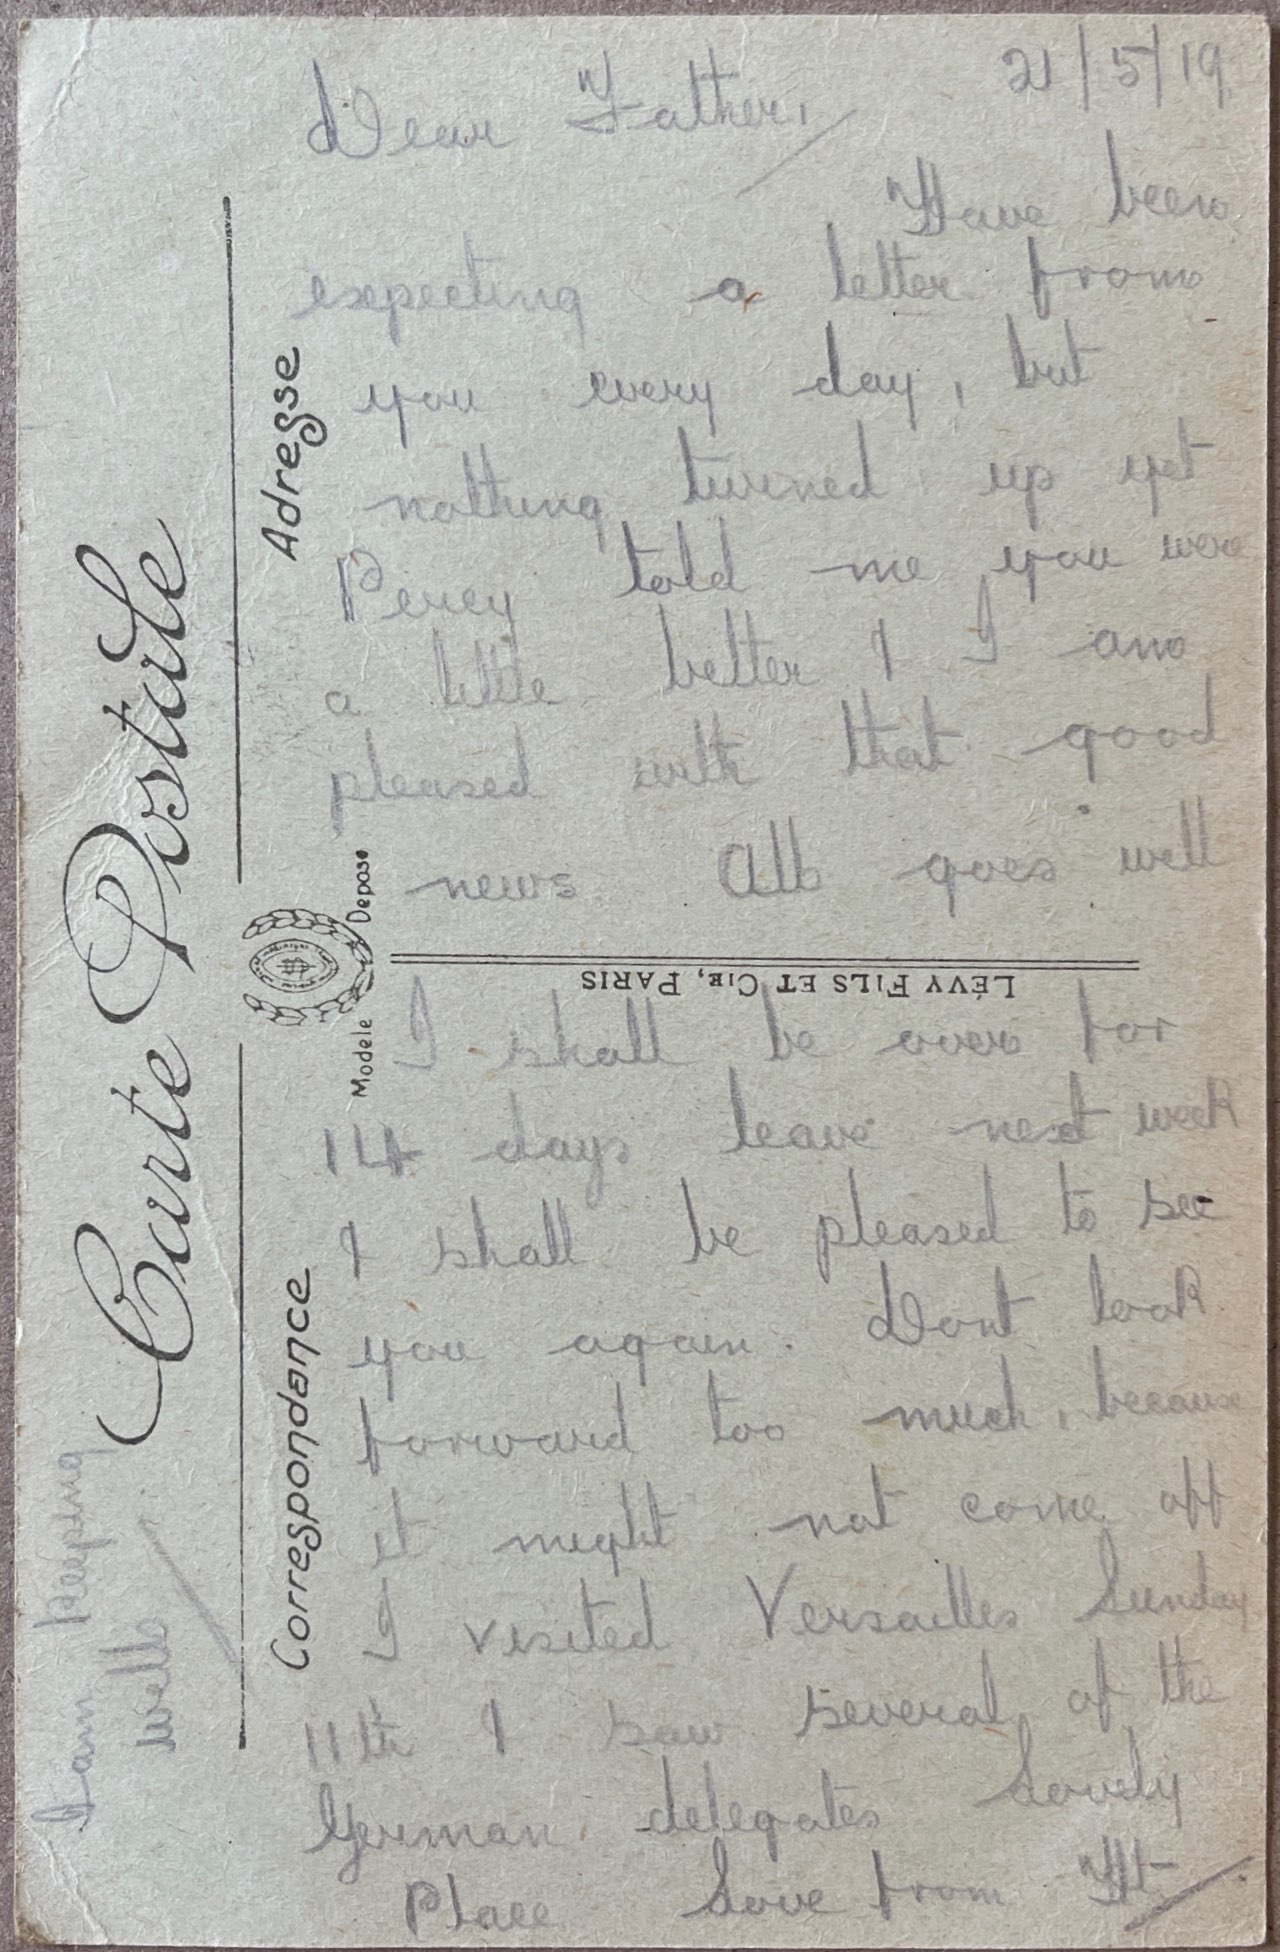 21/5/19
Dear Father,
Have been
expecting a letter from
you every day, but
nothing turned up yet
Percy told me you were
a little better & I am
pleased with that good
news. All goes well
I shall be over for
14 days leave next week
& shall be pleased to see
you again. Dont look
forward too much, because
it might not come off
I visited Versailles Sunday
11th & saw several of the
German delegates Lovely
Place Love from H
I am keeping
well
Carte Postale
Correspondance
Adresse
Modele Depose
LÉVY FILS ET CIE, PARIS